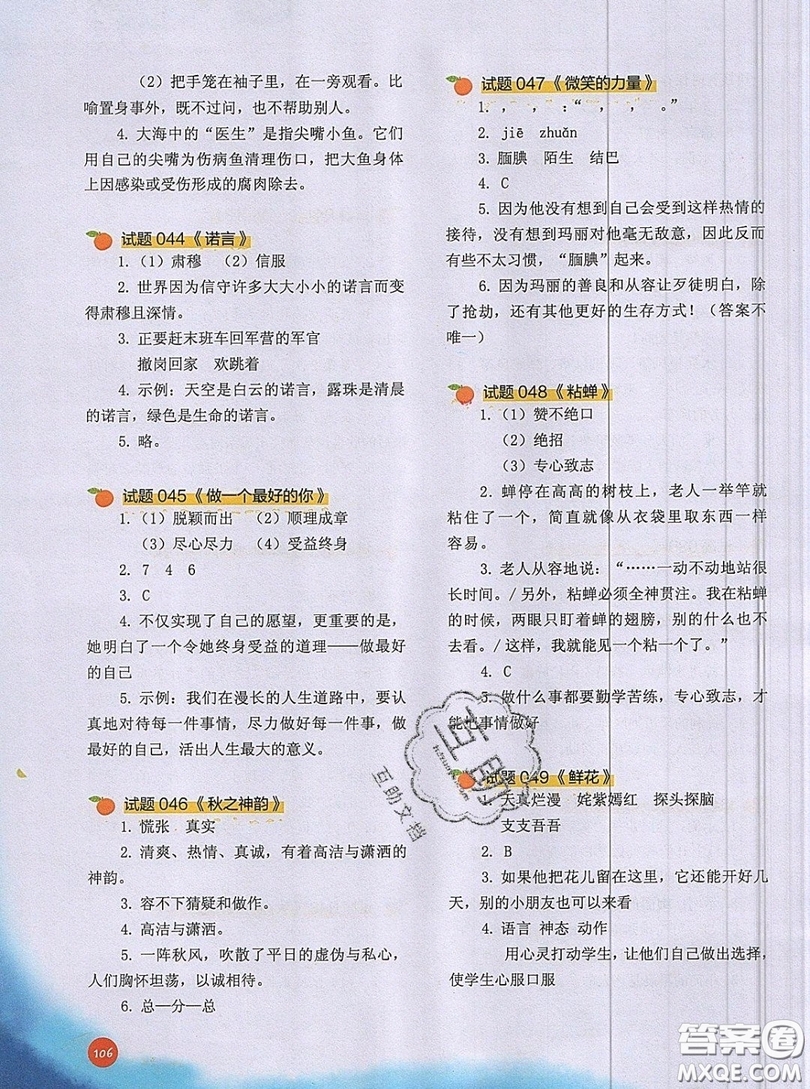 （2）把手笼在袖子里，在一旁观看。比
喻置身事外，既不过问，也不帮助别人。
4. 大海中的“医生”是指尖嘴小鱼。它们
用自己的尖嘴为伤病鱼清理伤口，把大鱼身体
上因感染或受伤形成的腐肉除去。
试题 044《诺言》
1.（1）肃穆　（2）信服
2. 世界因为信守许多大大小小的诺言而变
得肃穆且深情。
3. 正要赶末班车回军营的军官
撤岗回家　欢跳着
4. 示例：天空是白云的诺言，露珠是清晨
的诺言，绿色是生命的诺言。
5. 略。
试题 045《做一个最好的你》
1.（1）脱颖而出　（2）顺理成章
（3）尽心尽力　（4）受益终身
2. 7　4　6
3. C
4. 不仅实现了自己的愿望，更重要的是，
她明白了一个令她终身受益的道理——做最好
的自己
5. 示例：我们在漫长的人生道路中，要认
真地对待每一件事情，尽力做好每一件事，做
最好的自己，活出人生最大的意义。
试题 046《秋之神韵》
1. 慌张　真实
2. 清爽、热情、真诚，有着高洁与潇洒的
神韵。
3. 容不下猜疑和做作。
4. 高洁与潇洒。
5. 一阵秋风，吹散了平日的虚伪与私心，
人们胸怀坦荡，以诚相待。
6. 总—分—总
106
试题 047《微笑的力量》
1. ，　，　：“　，　，　。”
2. jiē　zhuǎn
3. 腼腆　陌生　结巴
4. C
5. 因为他没有想到自己会受到这样热情的
接待，没有想到玛丽对他毫无敌意，因此反而
有些不太习惯，“腼腆”起来。
6. 因为玛丽的善良和从容让歹徒明白，除
了抢劫，还有其他更好的生存方式！（答案不
唯一）
试题 048《粘蝉》
1.（1）赞不绝口
（2）绝招
（3）专心致志
2. 蝉停在高高的树枝上，老人一举竿就
粘住了一个，简直就像从衣袋里取东西一样
容易。
3. 老人从容地说：“……一动不动地站很
长时间。/ 另外，粘蝉必须全神贯注。我在粘蝉
的时候，两眼只盯着蝉的翅膀，别的什么也不
去看。/ 这样，我就能见一个粘一个了。”
4. C
5. 做什么事都要勤学苦练，专心致志，才
能把事情做好
试题 049《鲜花》
天真烂漫　姹紫嫣红　探头探脑
支支吾吾
2. B
3. 如果他把花儿留在这里，它还能开好几
天，别的小朋友也可以来看
4. 语言 神态 动作
用心灵打动学生，让他们自己做出选择，
使学生心服口服
互助
互助文档
答案圈
MXQE.COM